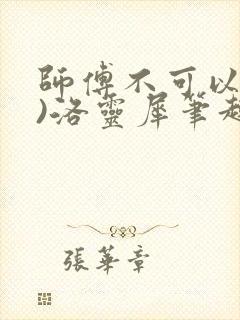 師傅不可以
)洛靈犀筆趣
張華章